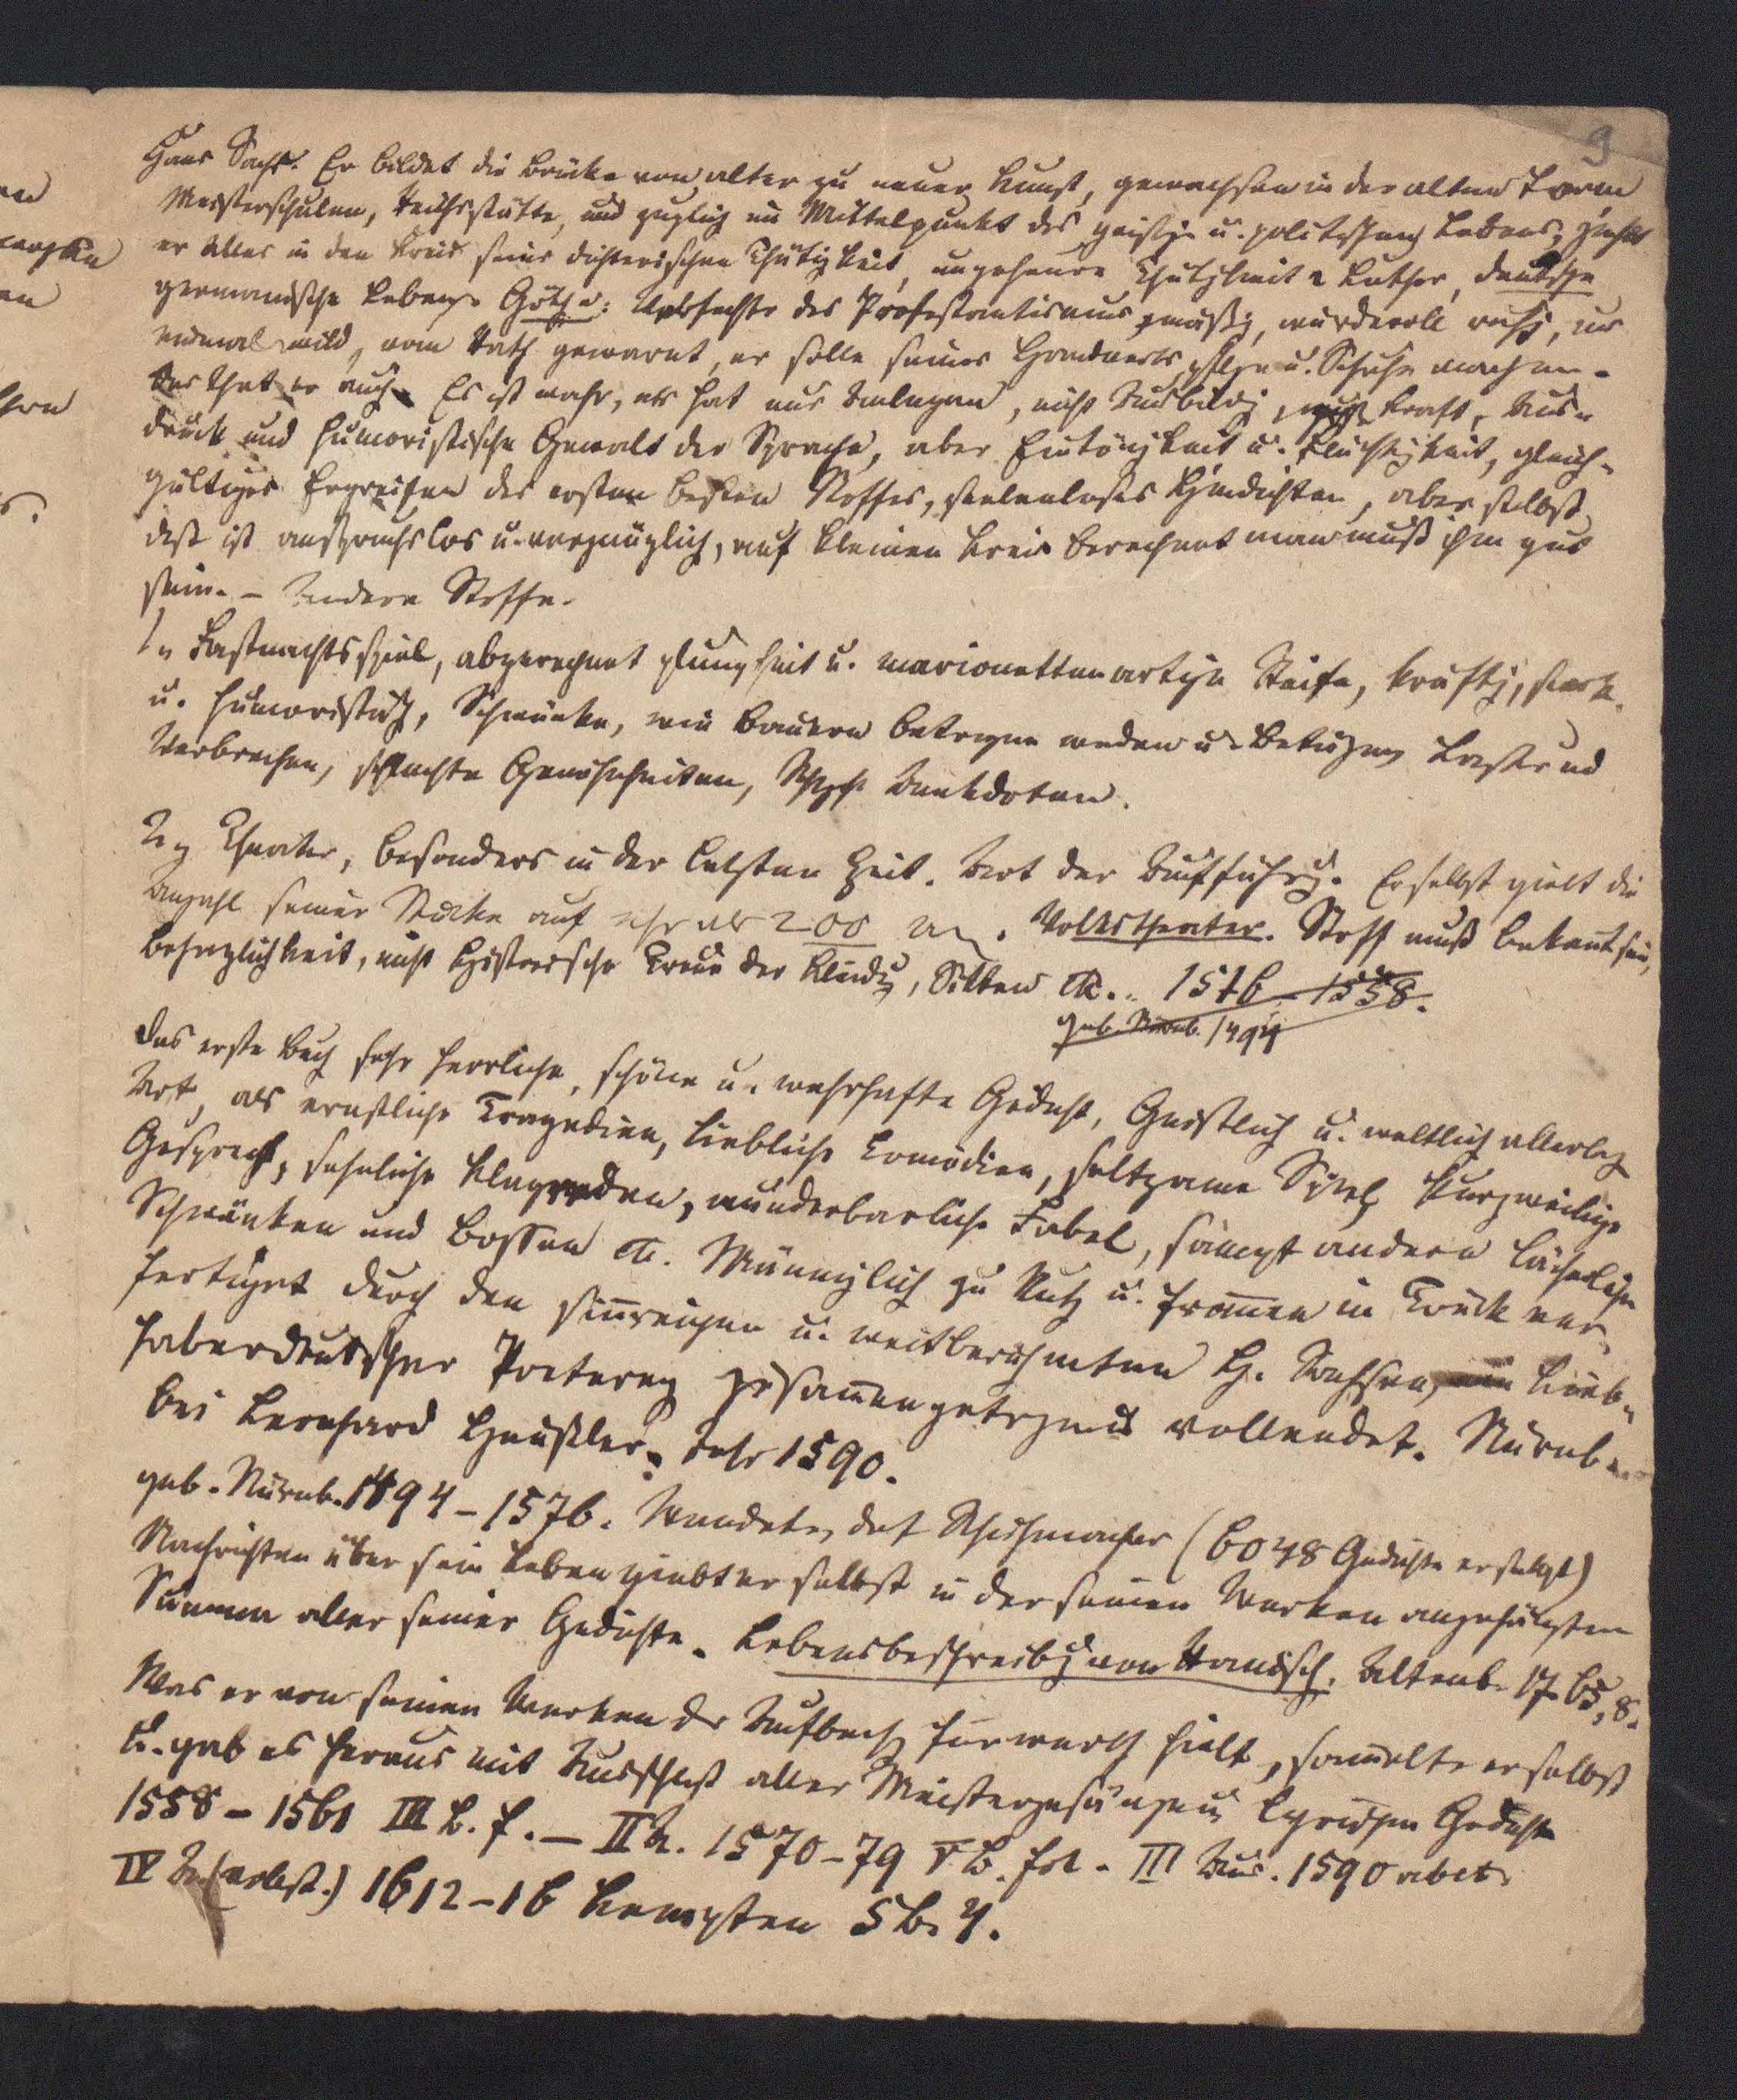 9
Hans Sachs. Er bildet die Brücke von alter zu neuer Kunst, gewachsen in der alten Form
Meisterschulen, Reichsstätte, und zugleich im Mittelpunkt des geistigen u. politischen Lebens, zieht
er Alles in den Kreis seiner dichterischen Thätigkeit, ungeheure Thätigkeit Luther, deutsche
germanische Göthe: Verfechter des Protestantismus mäßig, würdevoll ruhig, nur
einmal wild, vom Rath gewarnt, er solle seines Handwerks pflegen u. Schuhe machen.
Das that er auch. Es ist wahr, er hat nur Anlagen, nicht Ausbildg, Kraft, Aus-
druck und humoristische Gewalt der Sprache, aber Eintönigkeit u. Flüchtigkeit, gleich-
gültiges Ergreifen des ersten besten Stoffes, seelenloses Hindichten, aber selbst
dieß ist anspruchslos u. vergnüglich, auf kleinen Kreis berechnet man muß ihm gut
sein. - Andere Stoffe.
1, Fastnachtsspiel, abgerechnet Plumpheit u. marionettenartige Steife, kräftig, stark
u. humoristisch, Schwänke, wie Bauern betrogen werden u. betrügen Laster und
Verbrechen, schlechte Gewohnheiten, Anekdoten.
2, Theater, besonders in der letzten Zeit. Art der Aufführg. Er selbst giebt die
Anzahl seiner Stücke auf mehr als 200 an. Volkstheater. Stoff muß bekannt sein,
Behaglichkeit, nicht historische Treue der Kleidg, Sitten etc. 1576 - 1558.
geb. Nürnb. 1494
Das erste Buch sehr herrliche, schöne u. wahrhafte Gedicht, Geistlich u. weltlich allerley
Art, als ernstliche Tragedien, liebliche Comödien, seltzame Spiel, kurzweilige
Gesprech, sehnliche Klagreden, wunderbarliche Fabel, sampt andern lächerlichen
Schwänken und Bossen etc. Männiglich zu Nutz u. Frommen in Truck ver-
fertiget durch den sinreichen u. weitberühmten H. Sachsen, Lieb-
haber deutscher Poeterey zusammengetragen u vollendet. Nürnb.
bei Leonhard Heußler. Jahr 1590.
geb. Nürnb. 1494 - 1576. Schuhmacher (6048 Gedichte)
Nachrichten über sein Leben giebt er selbst in der seinen Werken angehängten
Summa aller seiner Gedichte. Lebensbeschreibg von Ranisch. Altenb. 1765, 8.
Was er von seinen Werken der Aufbewahrg für werth hielt, sammelte er selbst
u. gab es heraus mit Ausschluß aller Meistergesänge u lyrischen Gedichte
1558 - 1561 III B. f. - II A. 1570 - 79 V B. fol. III Aus. 1590
IV A. 1612 - 16 Kempten 5 B. 4.